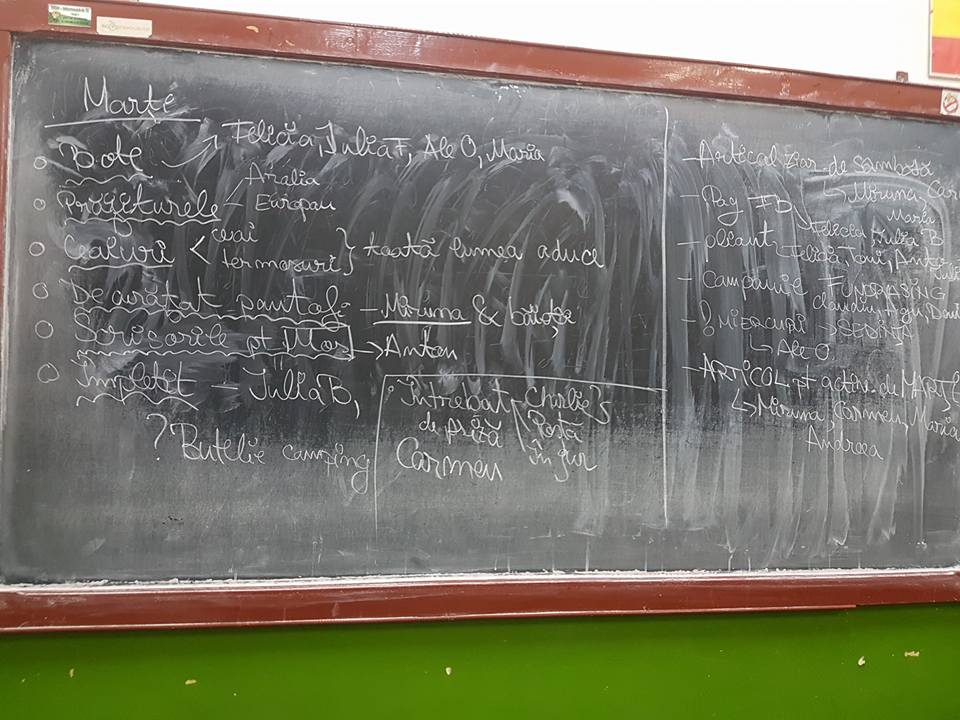 Marțe
Bote → Felicia, Iulia F, Ale O, Maria
Aralia
Prăjiturele - Europau
Ceaiuri < ceai
termosuri } toată lumea aduce
De arătat pantofi - Miruna & băieții
Scrisorile pt Moș → Anton
Împletit - Iulia B,
? Butelie camping
Întrebat de priză
Charlie's
Poștă
în jur
Carmen
- Articol ziar de sâmbătă
Miruna, Car
Maria
- Pag FB
Felicia, Iulia B
- pliant Felicia, Toni, Anto
Iuli
- CAMPANIE FUNDRASING
claudiu, Agu, Dani
- ! MIERCURI → SEDINȚĂ
↳ Ale O
- ARTICOL pt activ. de MARȚE
↳ Miruna, Carmen, Maria
Andreea